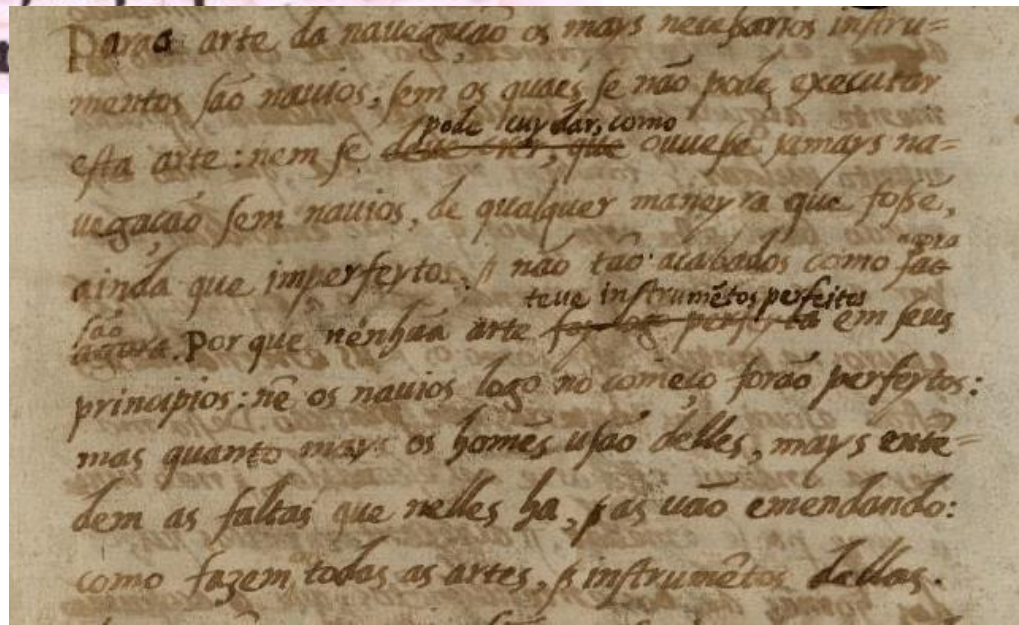 Para a arte da nauegação os mays neceßarios instru=
mentos são nauios, sem os quaes se não pode executar
pode cuydar, como
esta arte: nem se deue crer, que ouueße jamays na=
uegação sem nauios, de qualquer maneyra que foße,
agora
ainda que imperfeytos, & não tão acabados como são
teue instrumẽtos perfeitos
são
agora. Porque nenhũa arte foy logo perfeyta em seus
principios: nẽ os nauios logo no começo forão perfeytos:
mas quanto mays os homẽs usão delles, mays entẽ=
dem as faltas que nelles ha, & as uão emendando:
como fazem todas as artes, & instrumẽtos dellas.